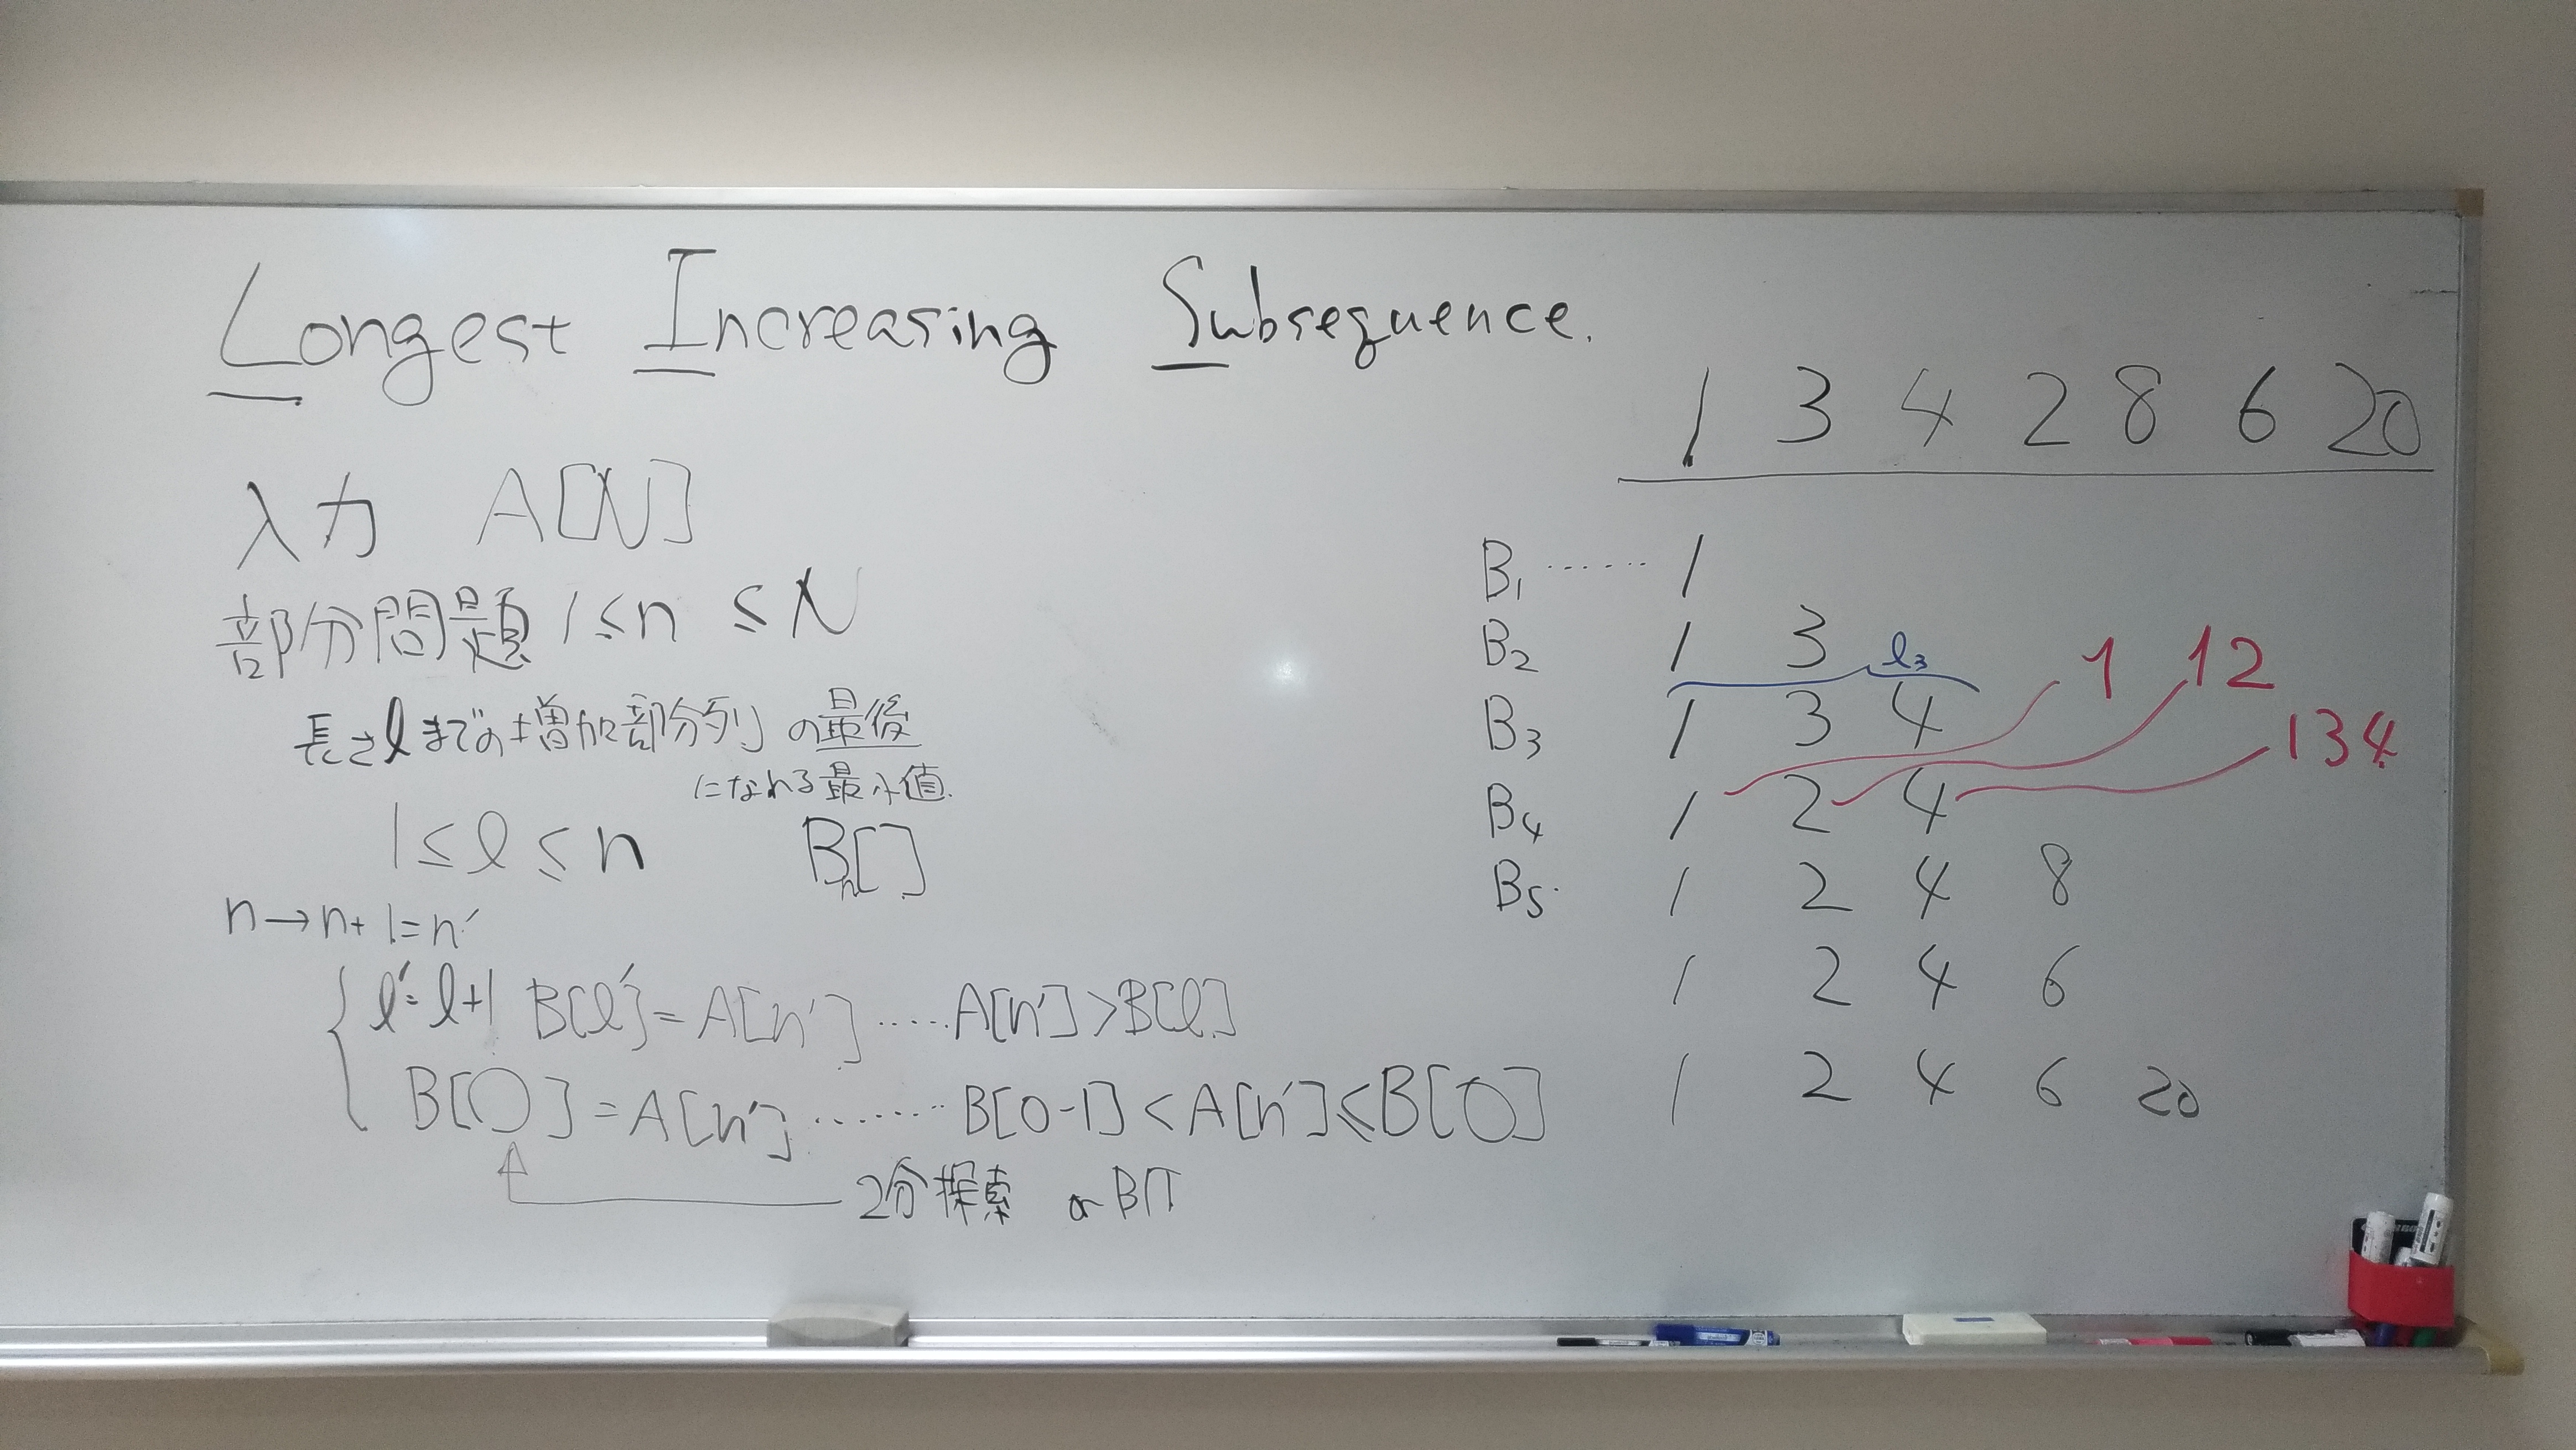 Longest Increasing Subsequence.
入力 A[N]
部分問題 1≤n ≤N
長さlまでの増加部分列の最後
になれる最小値.
1≤l≤n B_n[]
n→n+1=n'
l'=l+1 B[l']=A[n'] ..... A[n']>B[l]
B[〇]=A[n'] ........ B[〇-1]<A[n']≤B[〇]
2分探索 or BIT
1 3 4 2 8 6 20
B₁ ...... 1
B₂ 1 3
l₃
B₃ 1 3 4
B₄ 1 2 4
1
12
134
B₅. 1 2 4 8
1 2 4 6
1 2 4 6 20